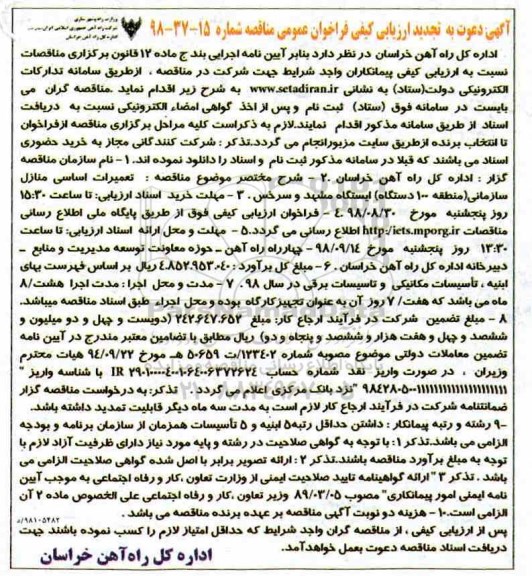 وزارت راه و شهرسازی
شرکت راه آهن جمهوری اسلامی ایران
اداره کل راه آهن خراسان
آگهی دعوت به تجدید ارزیابی کیفی فراخوان عمومی مناقصه شماره ۱۵-۳۷-۹۸
اداره کل راه آهن خراسان در نظر دارد بنابر آیین نامه اجرایی بند ج ماده ۱۲ قانون برگزاری مناقصات
نسبت به ارزیابی کیفی پیمانکاران واجد شرایط جهت شرکت در مناقصه ، ازطریق سامانه تدارکات
الکترونیکی دولت(ستاد) به نشانی www.setadiran.ir به شرح زیر اقدام نماید .مناقصه گران می
بایست در سامانه فوق (ستاد) ثبت نام و پس از اخذ گواهی امضاء الکترونیکی نسبت به دریافت
اسناد از طریق سامانه مذکور اقدام نمایند.لازم به ذکراست کلیه مراحل برگزاری مناقصه ازفراخوان
تا انتخاب برنده ازطریق سایت مزبورانجام می گردد.تذکر : شرکت کنندگانی مجاز به خرید حضوری
اسناد می باشند که قبلا در سامانه مذکور ثبت نام و اسناد را دانلود نموده اند. ۱- نام سازمان مناقصه
گزار : اداره کل راه آهن خراسان .۲ - شرح مختصر موضوع مناقصه : تعمیرات اساسی منازل
سازمانی(منطقه ۱۰۰ دستگاه) ایستگاه مشهد و سرخس . ۳ - مهلت خرید اسناد ارزیابی: تا ساعت ۱۵:۳۰
روز پنجشنبه مورخ ۹۸/۰۸/۳۰ .۴ - فراخوان ارزیابی کیفی فوق از طریق پایگاه ملی اطلاع رسانی
مناقصات http:/iets.mporg.ir اطلاع رسانی می گردد.۵ - مهلت و محل ارائه اسناد ارزیابی: تا ساعت
۱۳:۳۰ روز پنجشنبه مورخ ۹۸/۰۹/۱۴ - چهارراه راه آهن - حوزه معاونت توسعه مدیریت و منابع -
دبیرخانه اداره کل راه آهن خراسان . ۶ - مبلغ کل برآورد : ۴،۸۵۲،۹۵۳،۰۴۰ ریال بر اساس فهرست بهای
ابنیه ، تأسیسات مکانیکی و تاسیسات برقی در سال ۹۸. ۷ - مدت و محل اجرا : مدت اجرا هشت/۸
ماه می باشد که هفت/ ۷ روز آن به عنوان تجهیزکارگاه بوده و محل اجراء طبق اسناد مناقصه میباشد.
۸ - مبلغ تضمین شرکت در فرآیند ارجاع کار: مبلغ ۲۴۲،۶۴۷،۶۵۲ (دویست و چهل و دو میلیون و
ششصد و چهل و هفت هزار و ششصد و پنجاه و دو) ریال مطابق با تضامین معتبر مندرج در آیین نامه
تضمین معاملات دولتی موضوع مصوبه شماره ۱۲۳۴۰۲/ت ۵۰۶۵۹ هـ مورخ ۹۴/۰۹/۲۲ هیات محترم
وزیران ، در صورت واریز نقد شماره حساب با شناسه واریز "
" نزد بانک مرکزی اعلام می گردد. تذکر: به درخواست مناقصه گزار
ضمانتنامه شرکت در فرآیند ارجاع کار لازم است به مدت سه ماه دیگر قابلیت تمدید داشته باشد.
۹- رشته و رتبه پیمانکار : داشتن حداقل رتبه۵ ابنیه و ۵ تأسیسات همزمان از سازمان برنامه و بودجه
الزامی می باشد.تذکر۱: با توجه به گواهی صلاحیت در رشته و پایه مورد نیاز دارای ظرفیت آزاد لازم با
توجه به مبلغ برآورد مناقصه باشند.تذکر ۲: ارائه تصویر برابر با اصل شده گواهی صلاحیت الزامی می
باشد . تذکر ۳ " ارائه گواهینامه تایید صلاحیت ایمنی از وزارت تعاون ،کار و رفاه اجتماعی به موجب آیین
نامه ایمنی امور پیمانکاری" مصوب ۸۹/۰۳/۰۵ وزیر تعاون ،کار و رفاه اجتماعی علی الخصوص ماده ۲ آن
الزامی است.۱۰- هزینه دو نوبت آگهی مناقصه بر عهده برنده مناقصه می باشد .
پس از ارزیابی کیفی ، از مناقصه گران واجد شرایط که حداقل امتیاز لازم را کسب نموده باشند جهت
دریافت اسناد مناقصه دعوت بعمل خواهدآمد.
۹۸۱۰۵۴۸۲/د
اداره کل راه‌آهن خراسان